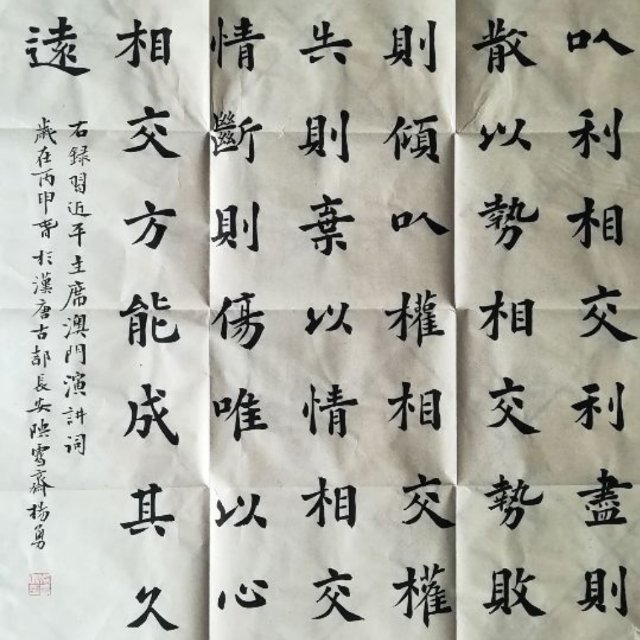 以利相交利盡則
散以勢相交勢敗
則傾以權相交權
失則棄以情相交
情斷則傷唯以心
相交方能成其久
遠
右録習近平主席澳門演讲词
歲在丙申於漢唐古都長安映雪齋楊勇